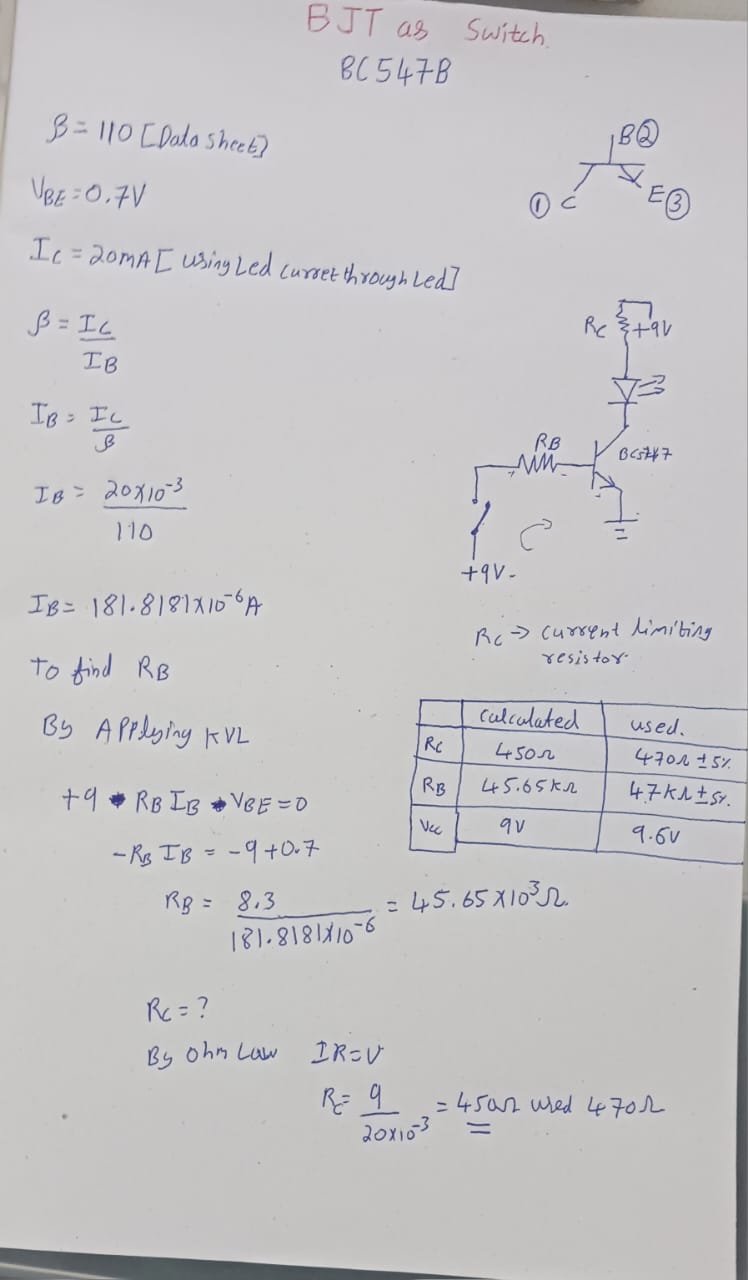 BJT as Switch.
BC547B
β = 110 [Data sheet]
VBE = 0.7V
IC = 20mA [ using Led curret through Led]
β = IC / IB
IB = IC / β
IB = 20x10⁻³ / 110
IB = 181.8181x10⁻⁶A
To find RB
By Applying KVL
+9 RB IB VBE = 0
-RB IB = -9+0.7
RB = 8.3 / 181.8181x10⁻⁶ = 45.65 x10³Ω.
RC = ?
By Ohm Law IR=V
RC = 9 / 20x10⁻³ = 450Ω used 470Ω
B②
① C
E③
RC +9V
RB
BC547
+9V-
RC → current limiting
resistor
calculated used.
RC 450Ω 470Ω ±5%
RB 45.65KΩ 47KΩ±5%.
Vcc 9V 9.6V